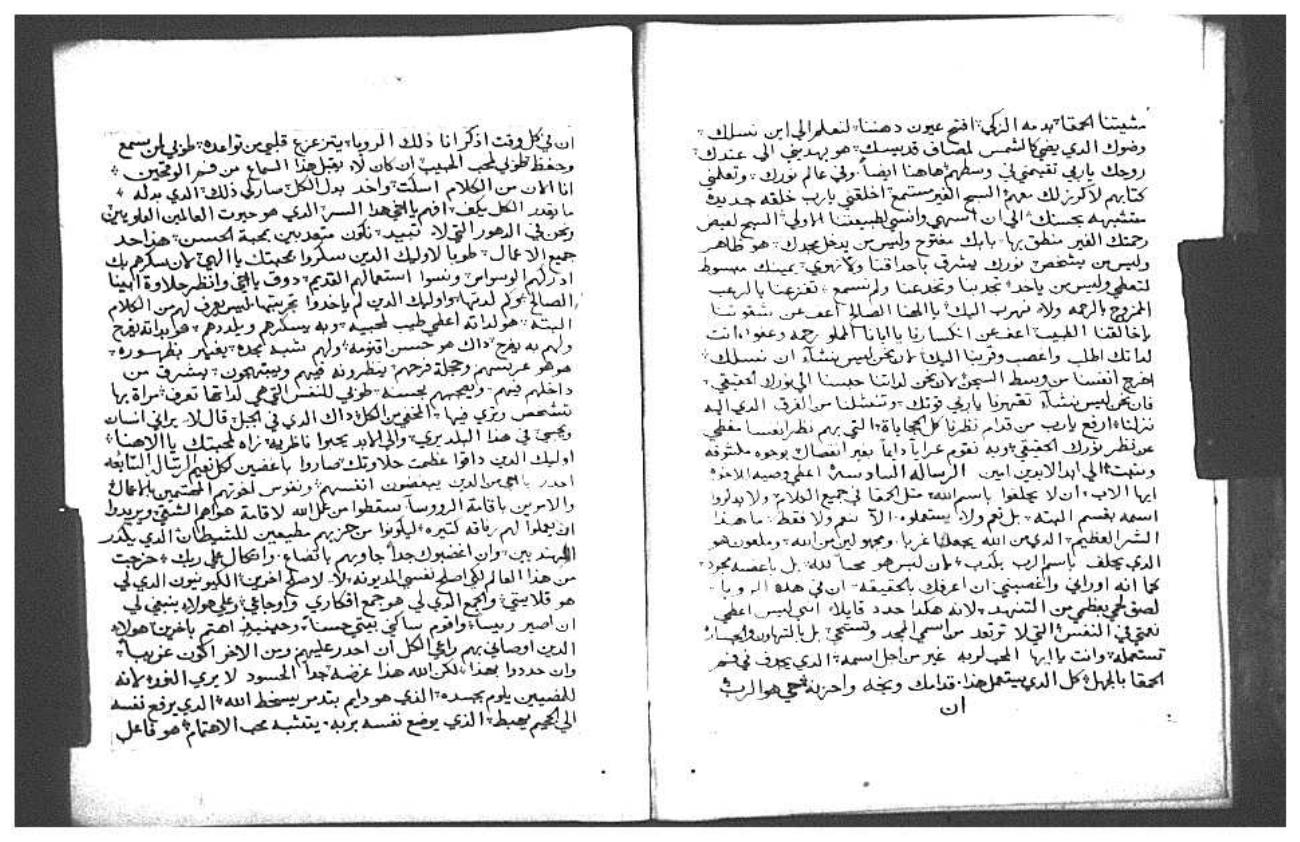 مشيتنا الحمقا بدمه الزكي افتح عيون دهننا لنعلم الي ابن نسلك
وضوك الذي يضي كالشمس لمصاف قديسيك هو يهديني الي عندك
روحك يارب تقيمني في وسطهم هاهنا ايضا وفي عالم نورك وتعلمني
كتابهم لاكرز لك معهم السبح الغير مستمع اخلقني يارب خلقه جديدة
متشبهه بحسنك الي ان اسهي وانسي لطبيعتنا الاولي السبح لفيض
رحمتك الغير منطق بها بابك مفتوح وليس من يدخل مجدك هو ظاهر
وليس من يشخص نورك يشرق باحداقنا ولا نهوي يمينك مبسوط
لتعطي وليس من ياخد تجدبنا وتخدعنا ولم نسمع تفزعنا بالرعب
الممزوج بالرحمه ولا نهرب اليك يا الهنا الصالح اعف عن شقوتنا
يا خالقنا الطبيب اعف عن انكسارنا يا ابانا المملو رحمه وعفوا انت
لداتك اطلب واغصب وقربنا اليك لان نحن ليس نشاء ان نسلك
اخرج انفسنا من وسط السجن لان نحن لداتنا حبسنا الي نورك الحقيقي
فان نحن ليس نشاء تقهرنا يارب قوتك وتنشلنا من الغرق الدي اليه
نزلنا ارفع يارب من قدام نظرنا كل التي بهم نظر انفسنا مغطي
عن نظر نورك الحقيقي وبه نقوم عرايا دايما بغير انفصال بوجوه مكشوفه
ونبهت الي ابد الابدين امين الرساله السادسة اعطي وصيه الاخوه
ايها الاب ان لا يحلفوا باسم الله مثل الحمقا في جميع الكلام ولا يدكروا
اسمه بقسم البته بل نعم ولا يستعملوه الا نعم ولا فقط ما هدا
الشر العظيم الدي من الله يجعلنا غربا ومجهولين من الله وملعون هو
الدي يحلف باسم الرب بكدب لان ليس هو محبا لله بل باغضه محدود
كما انه اوراني واغصبني ان اعرفك بالحقيقه ان في هده الرويا
لصق لحمي بعظمي من التنهد لانه هكدا حدد قايلا انني ليس اعطي
نعمتي في النفس التي لا ترتعد من اسمي الممجد وتستحي بل بالتهاون والجساره
تستعمله وانت يا ايها المحب لربه غير من اجل اسمه الدي يجدف في فم
الحمقا بالجهل كل الدي يستعمل هدا قدامك وبخه واحزنه حي هو الرب
ان
ان في كل وقت ادكر انا دلك الرويا يتزعزع قلبي من قواعده طوبي لمن يسمع
وحفظ طوبي لمحب الحبيب ان كان لا يقبل هدا السماع من فم الوقحين
انا الان من الكلام اسكت واخد بدل الكل صار لي دلك الدي بدله
ما يقدر الكل يكف افهم يا اخي هدا السر الدي هو حيوت العالمين العلويين
ونحن في الدهور التي لا تبيد نكون متعدبين بمحبة الحسن هدا حد
جميع الاعمال طوبا لاوليك الدين سكروا بمحبتك يا الهي لان بسكرهم بك
ادركهم الوسواس ونسوا استعمالهم القديم دوق يا اخي وانظر حلاوة ابينا
الصالح وكم لدتها واوليك الدين لم ياخدوا تجربتها ليس يعرف لهم من الكلام
البته هو لداته اعطي طيب لمحبيه وبه يسكرهم ويلددهم هو بداته يفرح
ولهم به يفرح داك هو حسن اقنومه ولهم شبه بمجده يغير بظهوره
هو هو عريسهم وحجلة فرحهم ينظرونه فيهم ويبتهجون يشرق من
داخلهم فيهم ويعجبهم بحسنه طوبي للنفس التي هي لداتها تعرف مراة بها
تتشخص وتري فيها المخفي من الكل داك الدي في الجبل قال لا يراني انسان
ويحيي في هدا البلد يري والي الابد يحيوا ناظريه نراه لمحبتك يا الاهنا
اوليك الدين داقوا عظمت حلاوتك صاروا باغضين لكل نعيم
احدر يا اخي من الدين يبغضون انفسهم ونفوس اخوتهم المهتمين بالاعمال
والامرين باقامة الروسا سقطوا من عمل الله لاقامة هواهم الشقي ويريدوا
ان يعملوا لهم رفاقه كتيره ليكونوا من حزبهم مطيعين للشيطان الدي يكدر
المهتدبين وان اغضبوك جدا جاوبهم باتضاع واتكال علي ربك خرجت
من هدا العالم لكي اصلح نفسي المديونه لا لاصلح اخرين الكيونيون الدي لي
هو قلايتي والجمع الدي لي هو جمع افكاري واوجاعي وعلي هولاي ينبغي لي
ان اصير رييسا واقوم ساكني بيتي حسنا وحينيد اهتم باخرين هولاي
الدين اوصاني بهم راعي الكل ان احدر عليهم ومن الاخر اكون غريبا
وان حددوا بهدا لكن الله هدا غرضه جدا الحسود لا يري الفرد لانه
للفضيين يلوم بجسده الدي هو دايم بتدمر يسخط الله الدي يرفع نفسه
الي الجحيم يهبط الدي يوضع نفسه بربه يتشبه محب الاهتمام هو فاعل